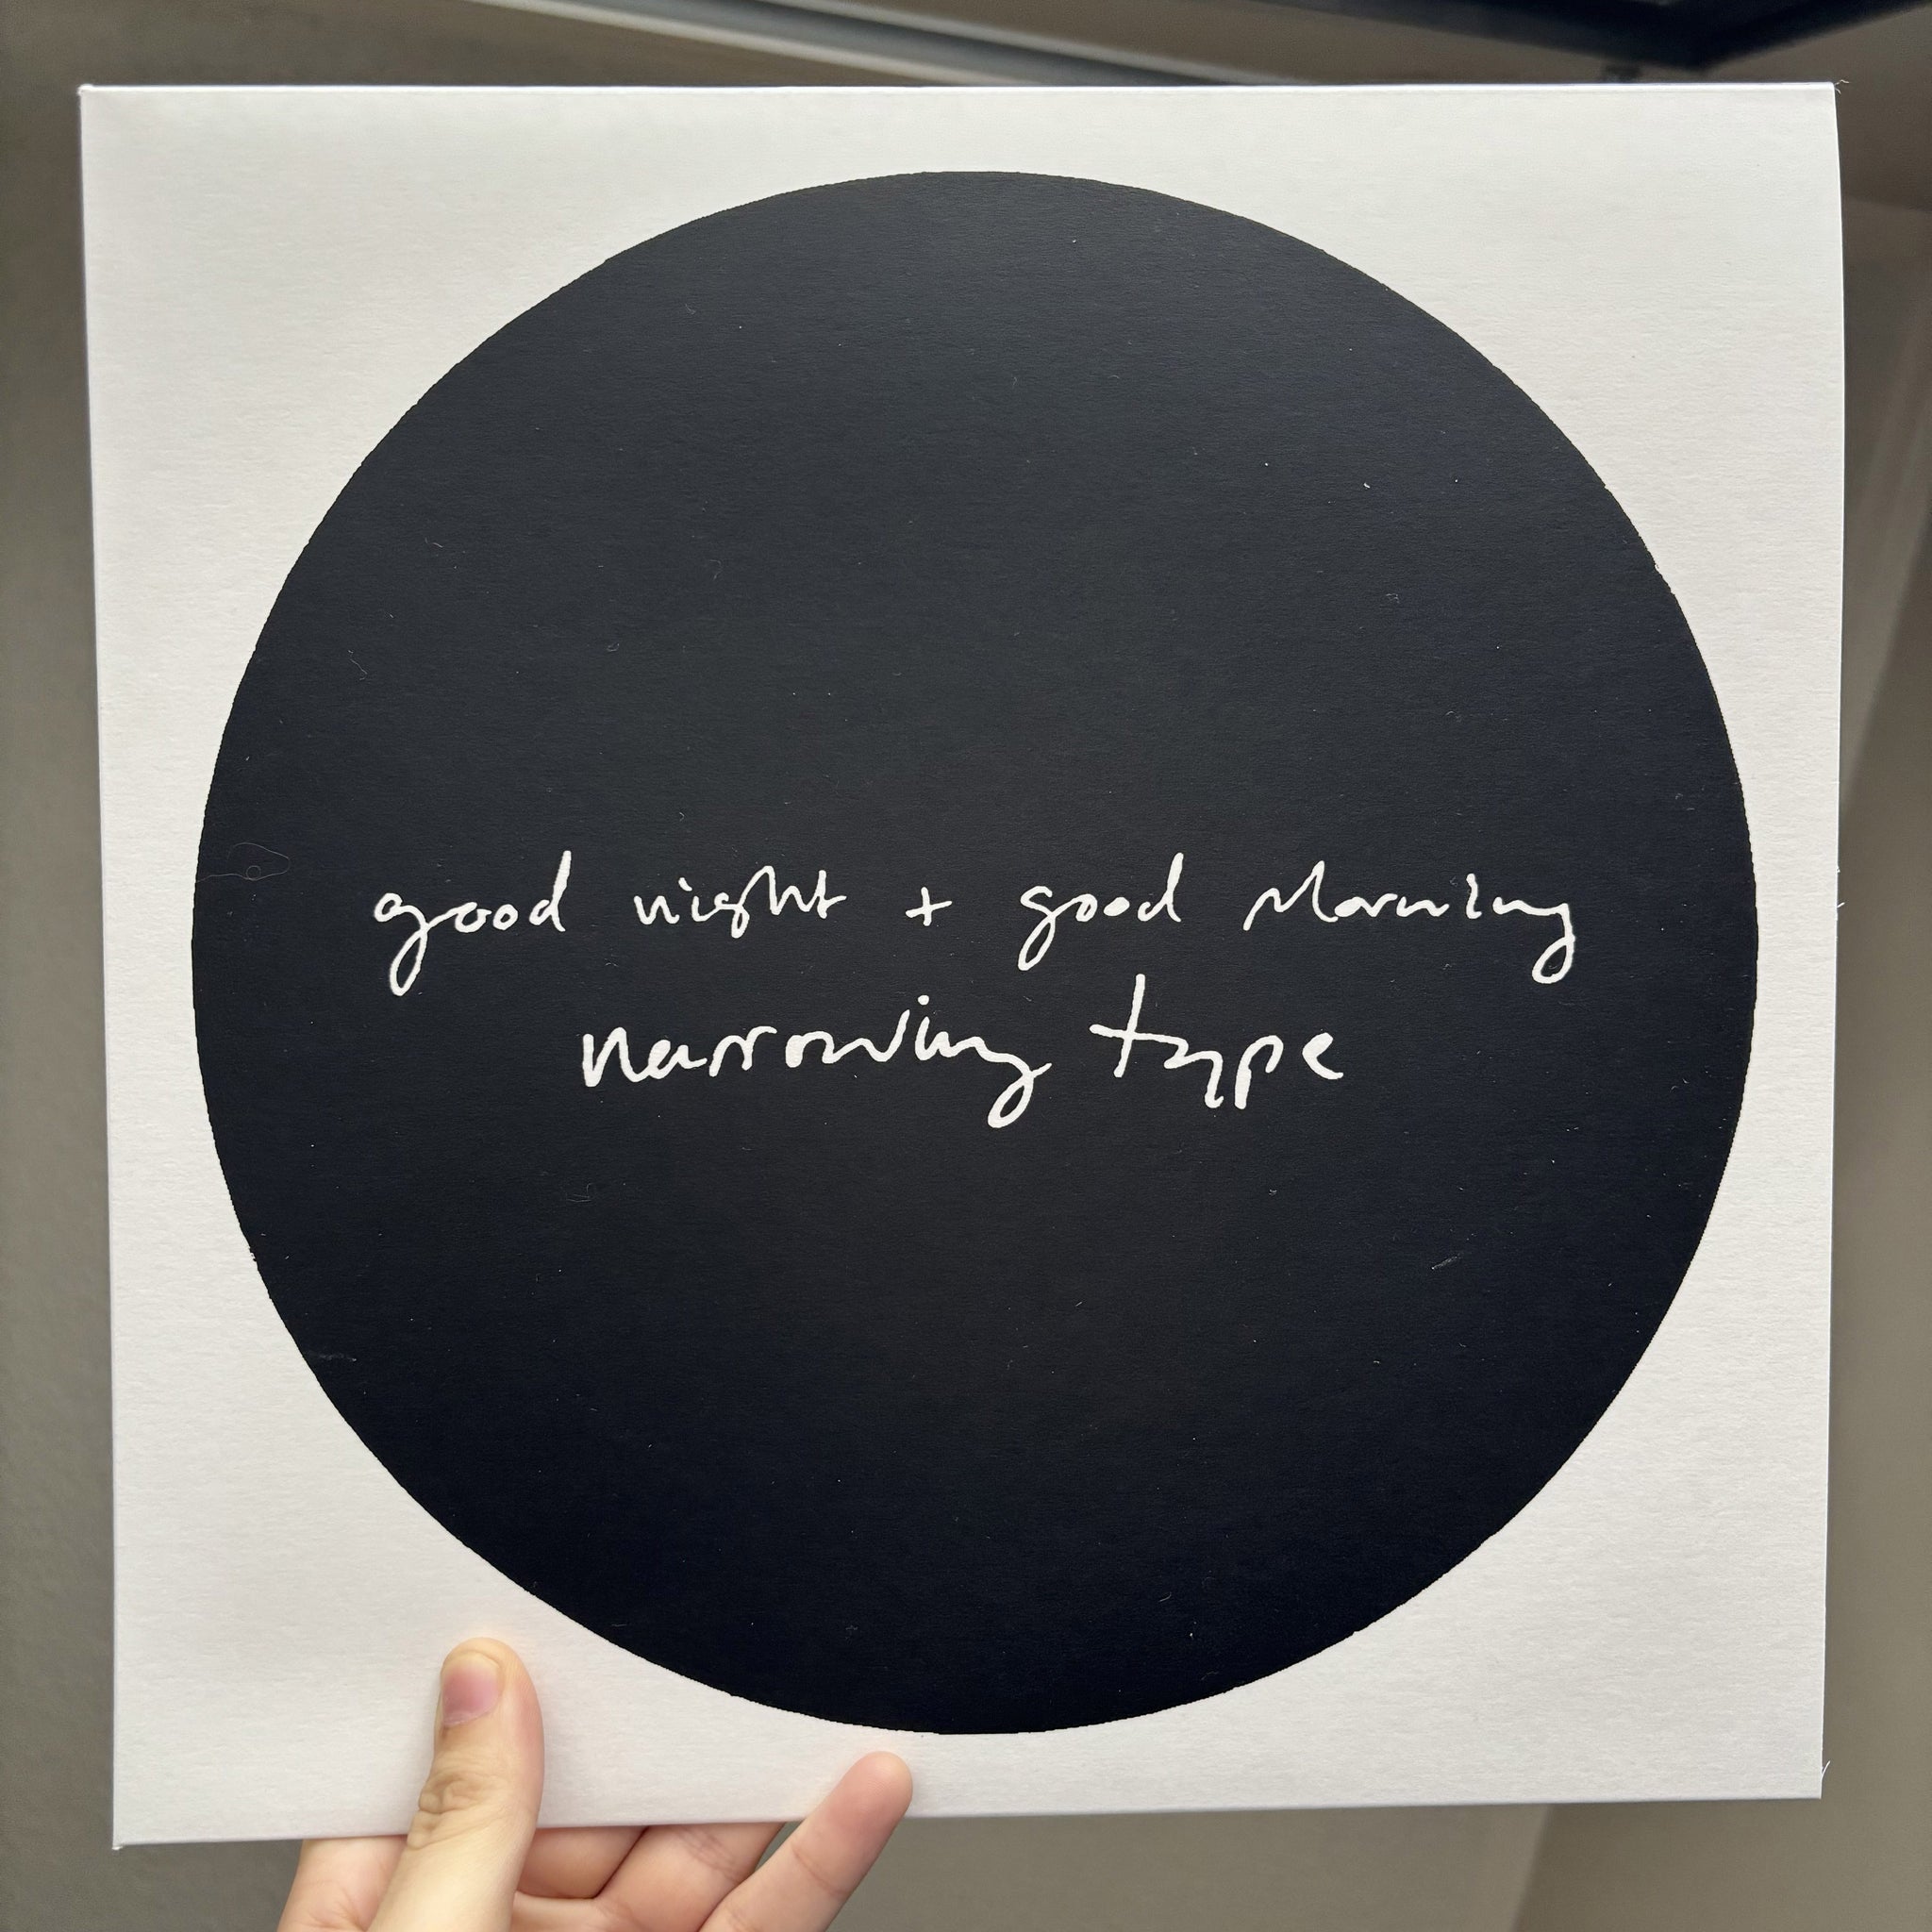 good night + good Morning
narrowing type